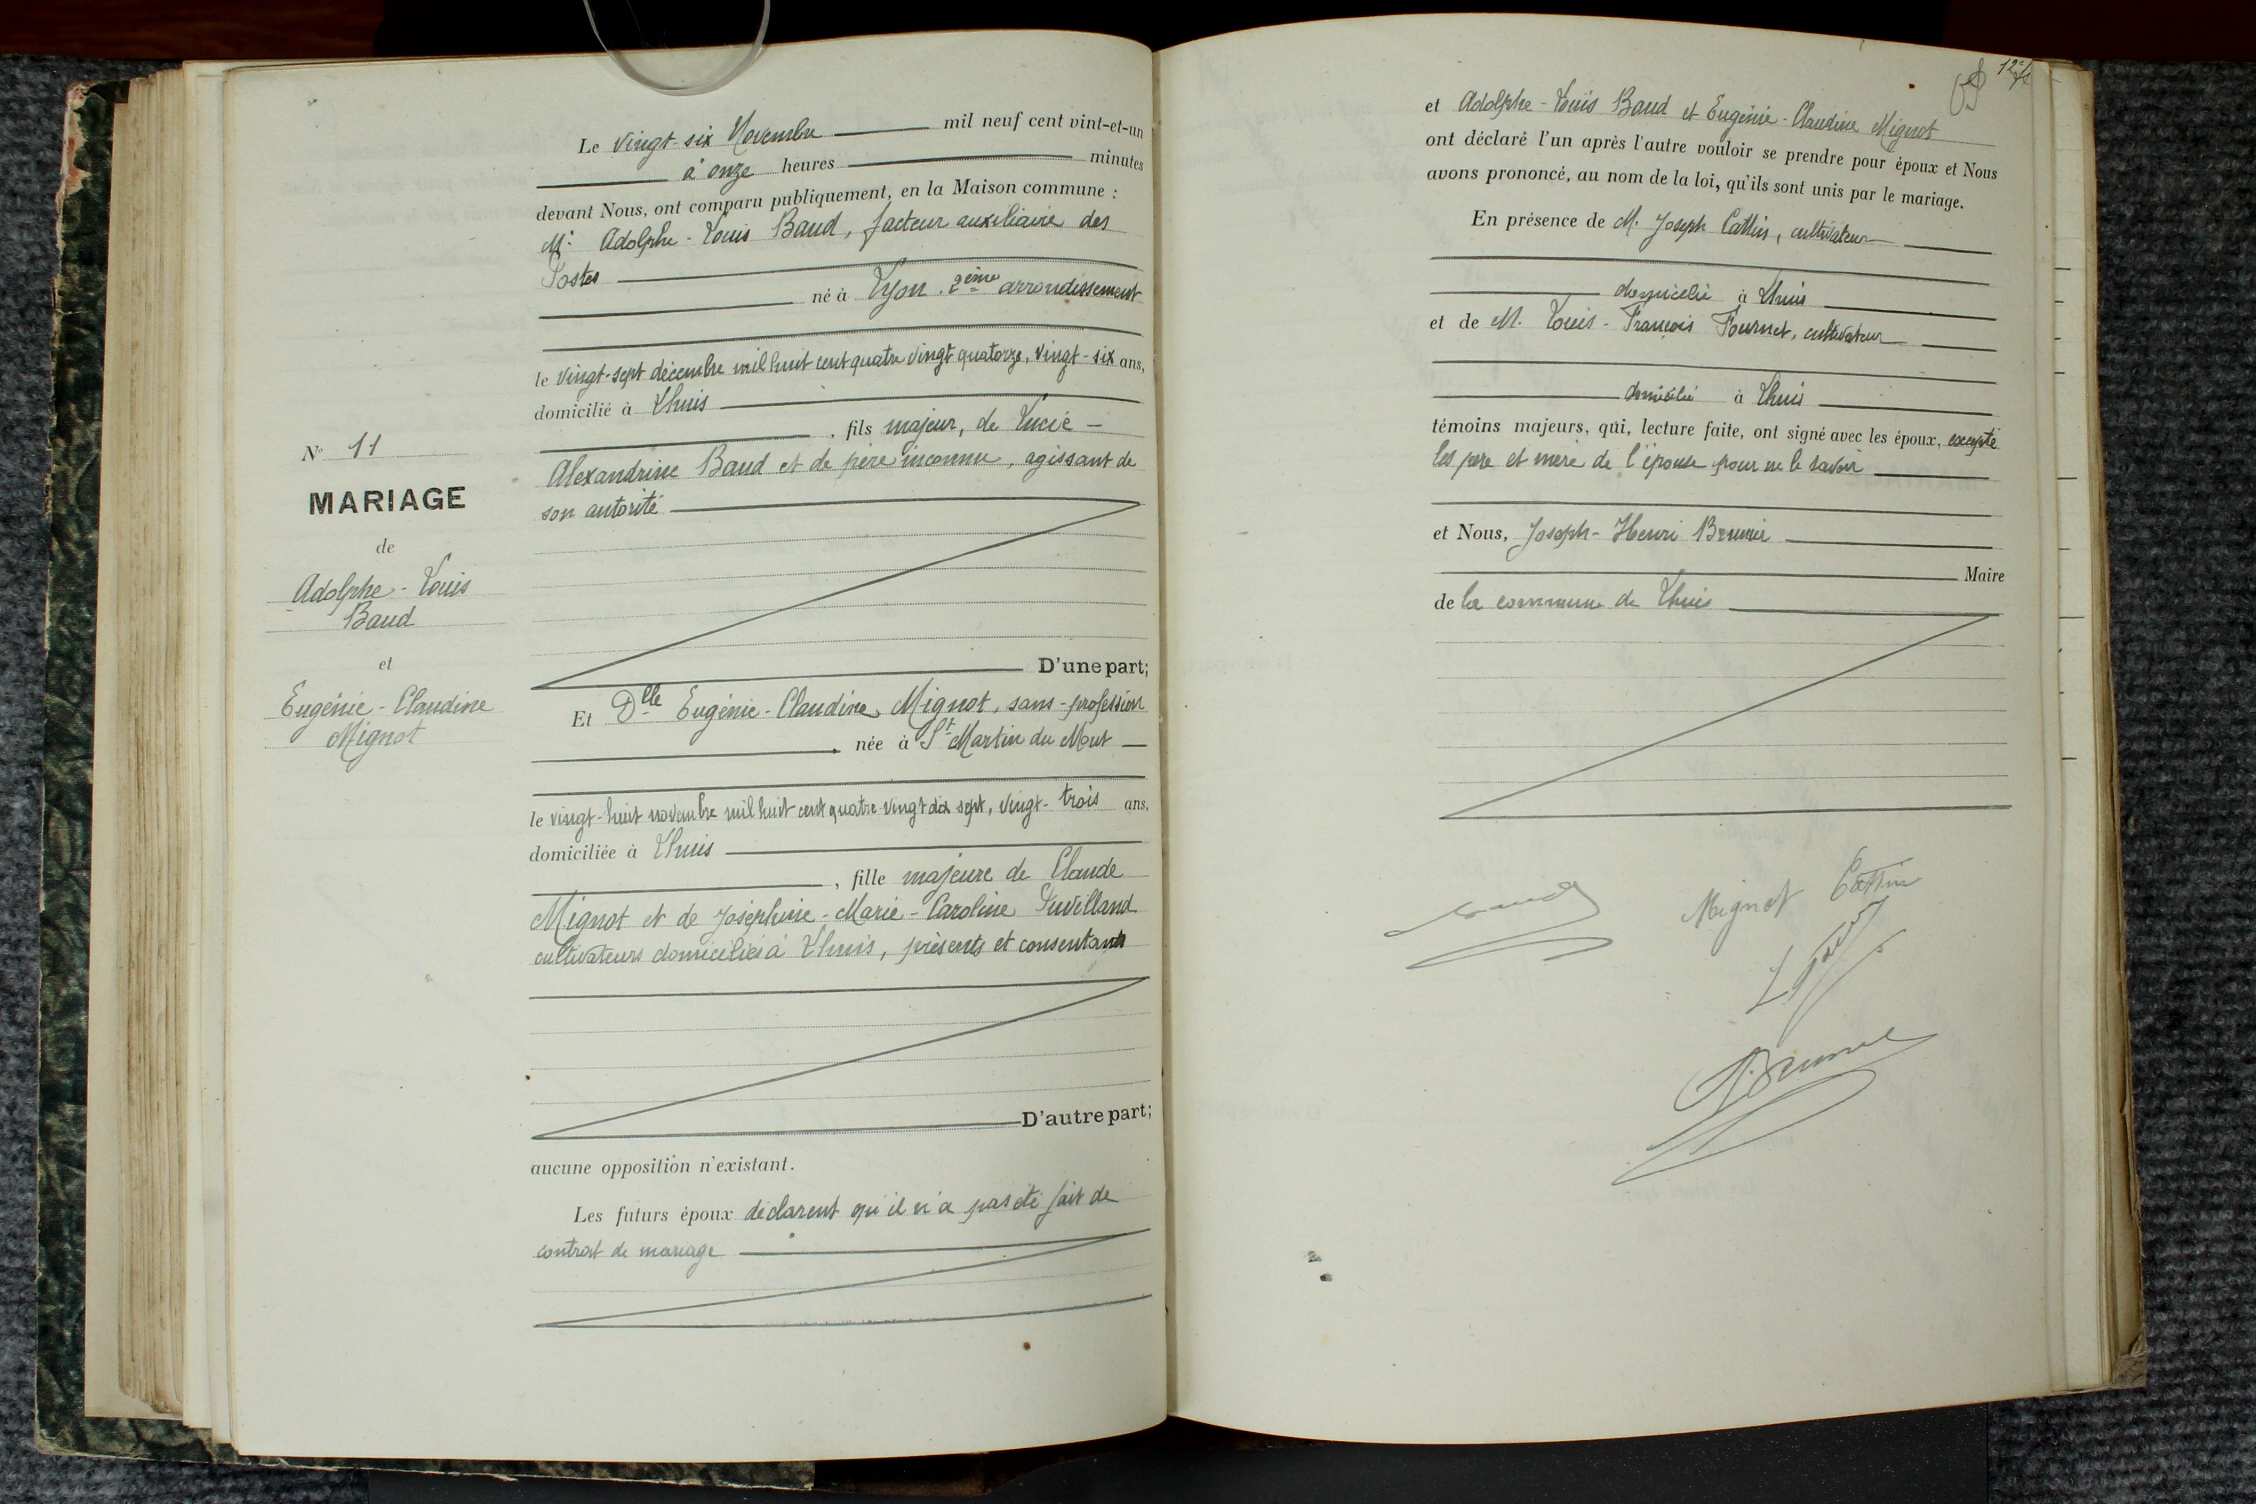 Le vingt-six Novembre mil neuf cent vint-et-un
à onze heures minutes
devant Nous, ont comparu publiquement, en la Maison commune :
Mr Adolphe-Louis Baud, facteur auxiliaire des
Postes
né à Lyon. 2ème arrondissement
le vingt-sept décembre mil huit cent quatre vingt quatorze, vingt-six ans,
domicilié à Lhuis
, fils majeur, de Lucie
Alexandrine Baud et de père inconnu, agissant de
son autorité
D'une part;
N° 11
MARIAGE
de
Adolphe-Louis
Baud
et
Eugénie-Claudine
Mignot
Et Dlle Eugénie-Claudine Mignot, sans-profession
née à St Martin du Mont
le vingt-huit novembre mil huit cent quatre-vingt dix sept, vingt-trois ans.
domiciliée à Lhuis
, fille majeure de Claude
Mignot et de Joséphine-Marie-Caroline
cultivateurs domiciliés à Lhuis, présents et consentants
D'autre part;
aucune opposition n'existant.
Les futurs époux déclarent qu'il n'a pas été fait de
contrat de mariage
et Adolphe-Louis Baud et Eugénie-Claudine Mignot
ont déclaré l'un après l'autre vouloir se prendre pour époux et Nous
avons prononcé, au nom de la loi, qu'ils sont unis par le mariage.
En présence de M. Joseph Cattin, cultivateur
domicilié à Lhuis
et de M. Louis-François Fournet, cultivateur
domicilié à Lhuis
témoins majeurs, qui, lecture faite, ont signé avec les époux, excepté
les père et mère de l'épouse pour ne le savoir
et Nous, Joseph-Henri Brunier
Maire
de la commune de Lhuis
Baud
Mignot Cattin